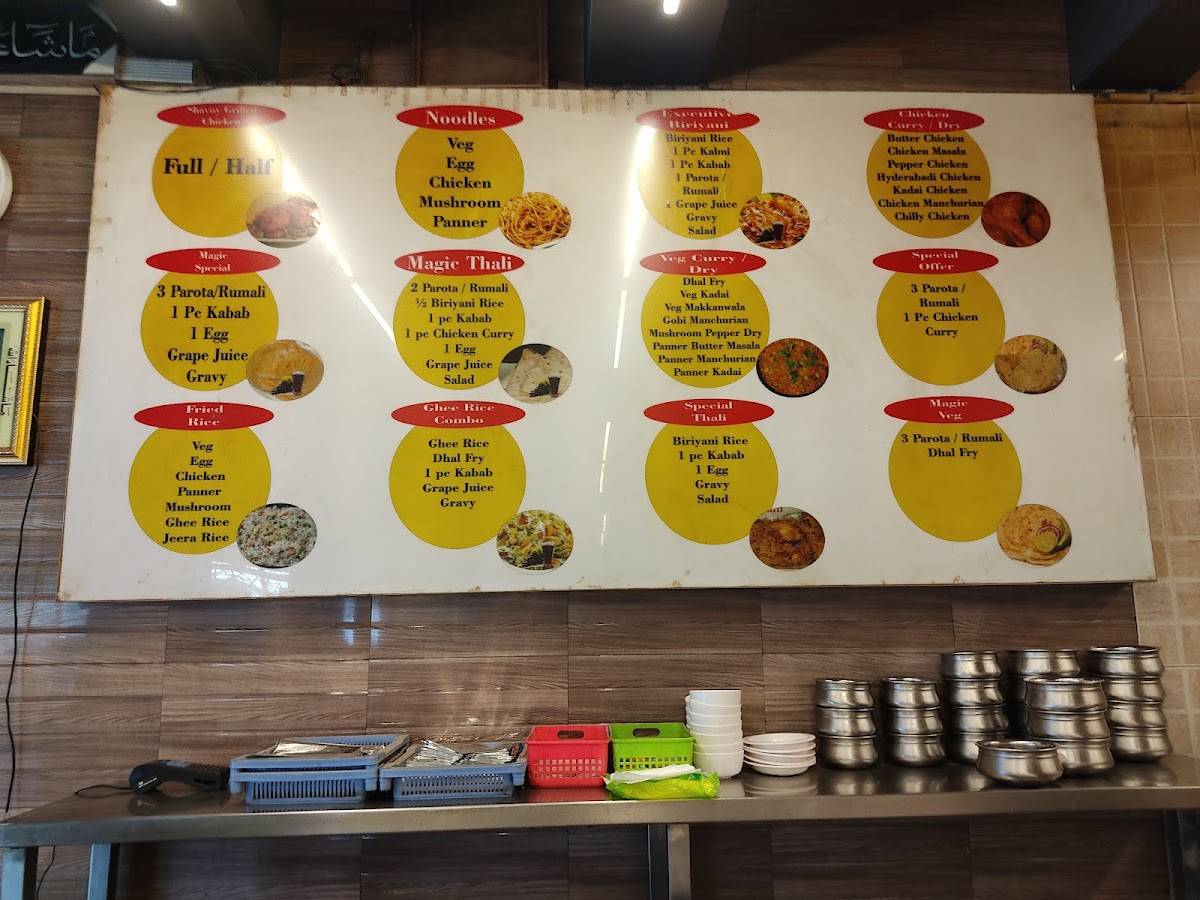 مَاشَاءَ
Shavny Grilled
Chicken
Full / Half
Noodles
Veg
Egg
Chicken
Mushroom
Panner
Executive
Biriyani
Biriyani Rice
1 Pc Kalmi
1 Pc Kabab
1 Parota /
Rumali
1 Grape Juice
Gravy
Salad
Chicken
Curry / Dry
Butter Chicken
Chicken Masala
Pepper Chicken
Hyderabadi Chicken
Kadai Chicken
Chicken Manchurian
Chilly Chicken
Magic
Special
3 Parota/Rumali
1 Pc Kabab
1 Egg
Grape Juice
Gravy
Magic Thali
2 Parota / Rumali
½ Biriyani Rice
1 pc Kabab
1 pc Chicken Curry
1 Egg
Grape Juice
Salad
Veg Curry /
Dry
Dhal Fry
Veg Kadai
Veg Makkanwala
Gobi Manchurian
Mushroom Pepper Dry
Panner Butter Masala
Panner Manchurian
Panner Kadai
Special
Offer
3 Parota /
Rumali
1 Pc Chicken
Curry
Fried
Rice
Veg
Egg
Chicken
Panner
Mushroom
Ghee Rice
Jeera Rice
Ghee Rice
Combo
Ghee Rice
Dhal Fry
1 pc Kabab
Grape Juice
Gravy
Special
Thali
Biriyani Rice
1 pc Kabab
1 Egg
Gravy
Salad
Magic
Veg
3 Parota / Rumali
Dhal Fry